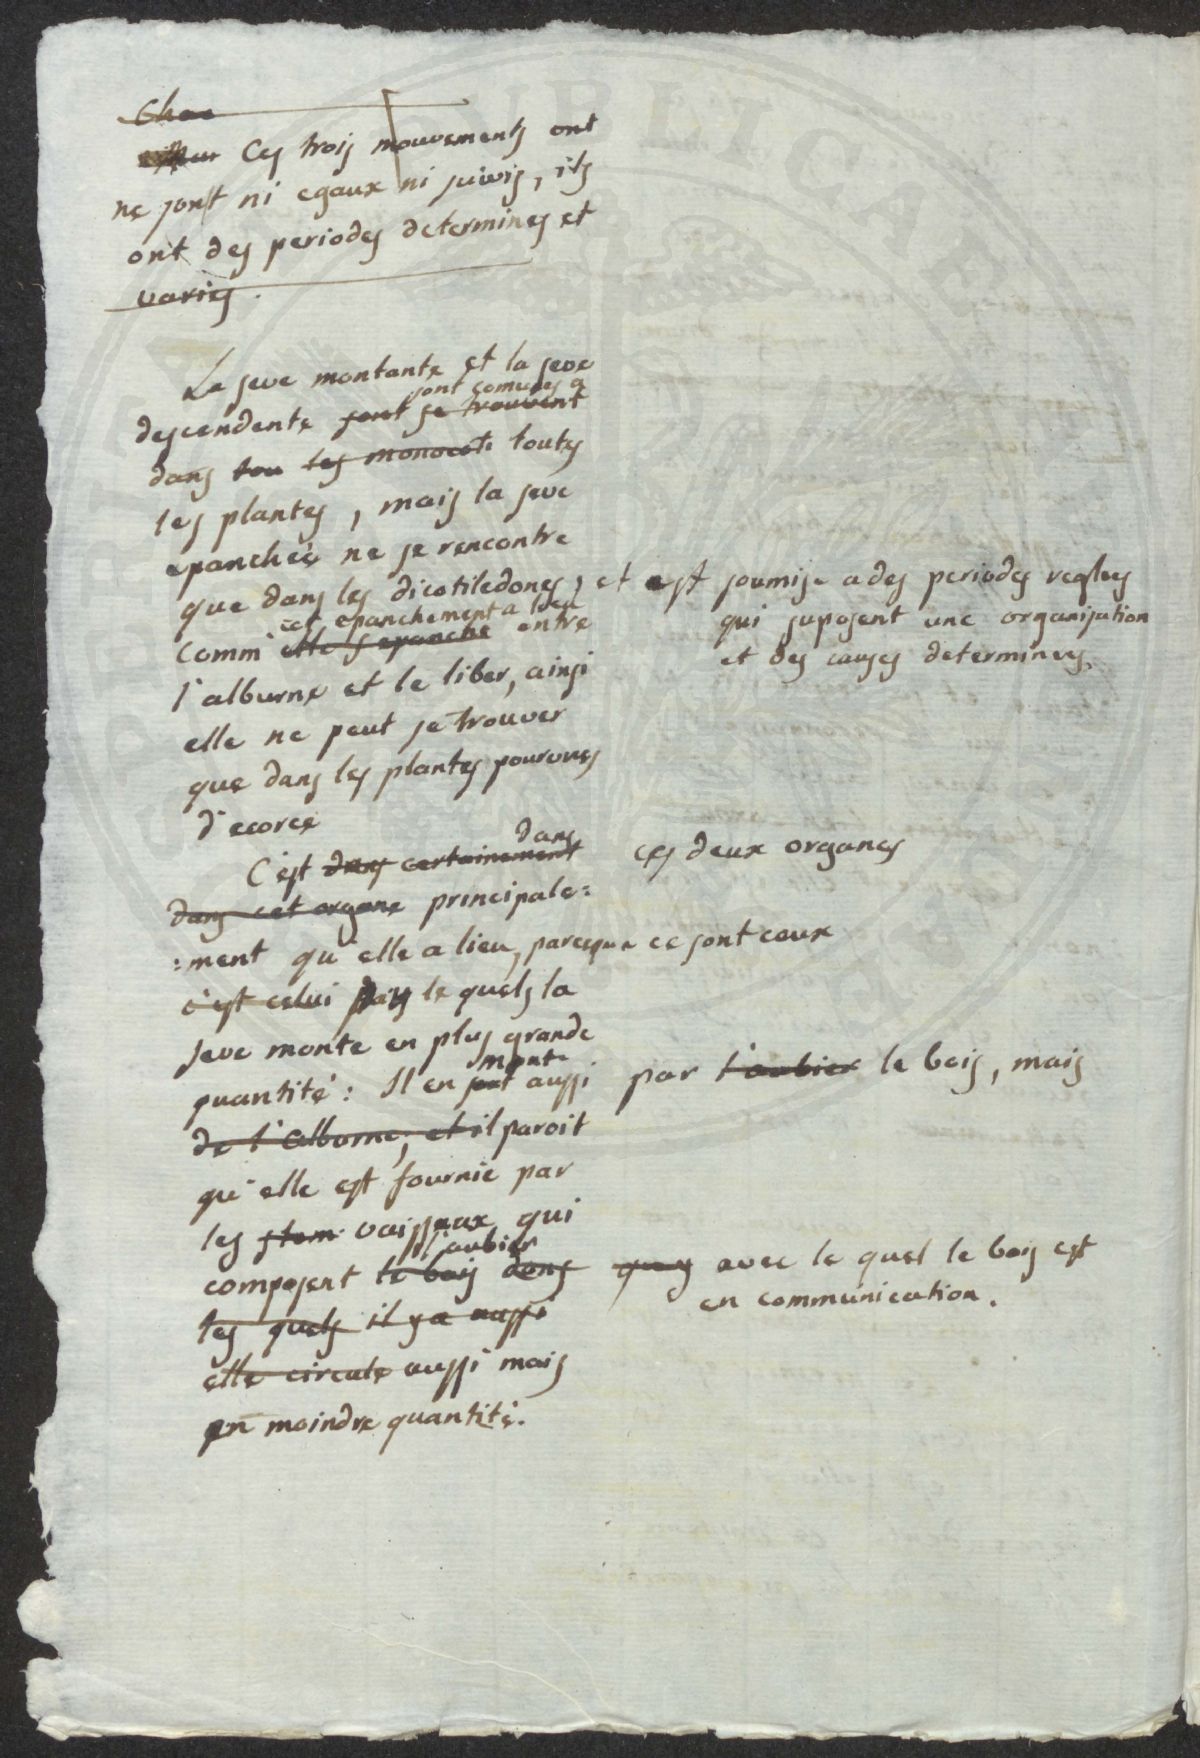 Chac
Ces trois mouvements ont
ne sont ni egaux ni suivis, ils
ont des periodes determines et
varies.
La seve montante et la seve
sont comunes a
descendente sont se trouvent
dans tou les monocoti toutes
les plantes, mais la seve
epanchée ne se rencontre
que dans les dicotiledones, et est soumise a des periodes reglees
qui suposent une organisation
et des causes determinees.
cet epanchement a lieu
comm' elle s'epanche entre
l'alburne et le liber, ainsi
elle ne peut se trouver
que dans les plantes pourvues
d'ecorce
dans
C'est dans certainement ces deux organes
dans cet organe principale=
=ment qu'elle a lieu, parceque ce sont ceux
c'est celui par le quels la
seve monte en plus grande
monte
quantité: Il en sort aussi par l'aubier le bois, mais
de l'alburne, et il paroit
qu'elle est fournie par
les vaisseaux qui
l'aubier
composent le bois dans avec le quel le bois est
en communication.
les quels il y a aussi
elle circule aussi mais
en moindre quantité.